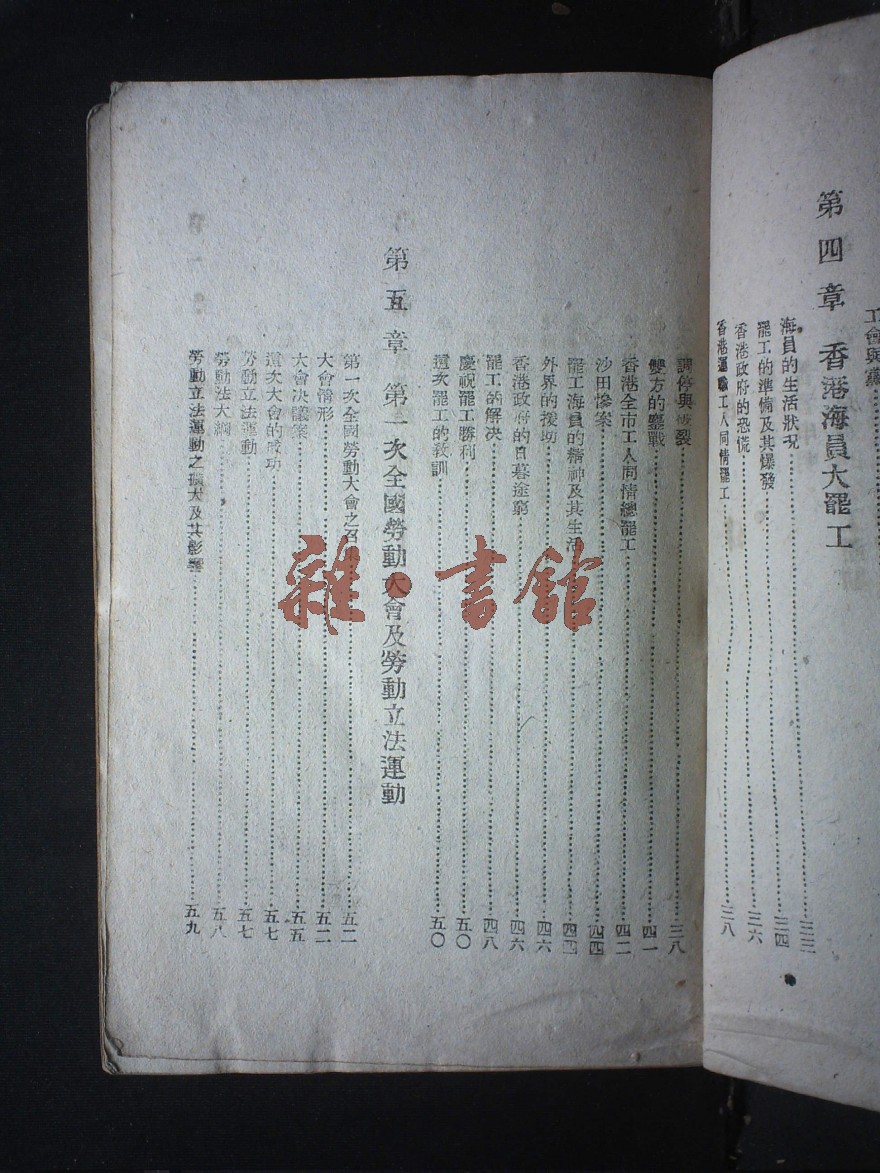 工會與黨
第四章 香港海員大罷工
海員的生活狀況……三三
罷工的準備及其爆發……三四
香港政府的恐慌……三六
香港運輸工人同情罷工……三八
調停與破裂……三八
雙方的鏖戰……四一
香港全市工人同情總罷工……四二
沙田慘案……四四
罷工海員的精神及其生活……四四
外界的援助……四六
香港政府的日暮途窮……四六
罷工的解决……四八
慶祝罷工勝利……五〇
這次罷工的敎訓……五〇
第五章 第一次全國勞動大會及勞動立法運動
第一次全國勞動大會之召……五二
大會情形……五二
大會决議案……五五
這次大會的成功……五七
勞動立法運動……五七
勞動法大綱……五八
勞動立法運動之擴大及其影響……五九
雜·書館